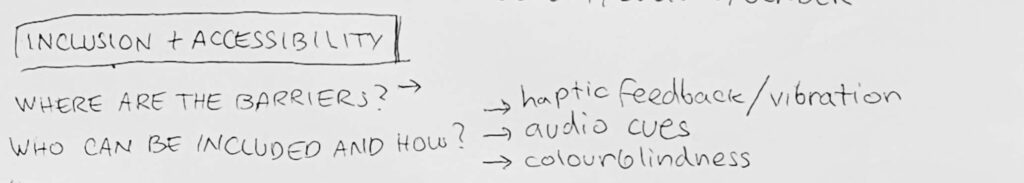 INCLUSION + ACCESSIBILITY
WHERE ARE THE BARRIERS? →
→ haptic feedback/vibration
WHO CAN BE INCLUDED AND HOW? → audio cues
→ colourblindness